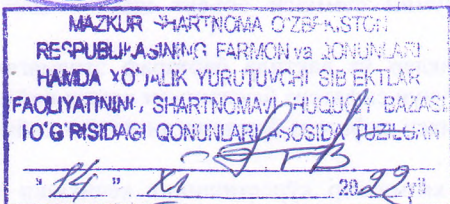 MAZKUR SHARTNOMA O'ZBEKISTON
RESPUBLIKASINING FARMON va QONUNLARI
HAMDA XO'JALIK YURUTUVCHI SUB'EKTLAR
FAOLIYATINING SHARTNOMAVIY HUQUQIY BAZASI
TO'G'RISIDAGI QONUNLARI ASOSIDA TUZILGAN
" 14 " XI 2022 yil